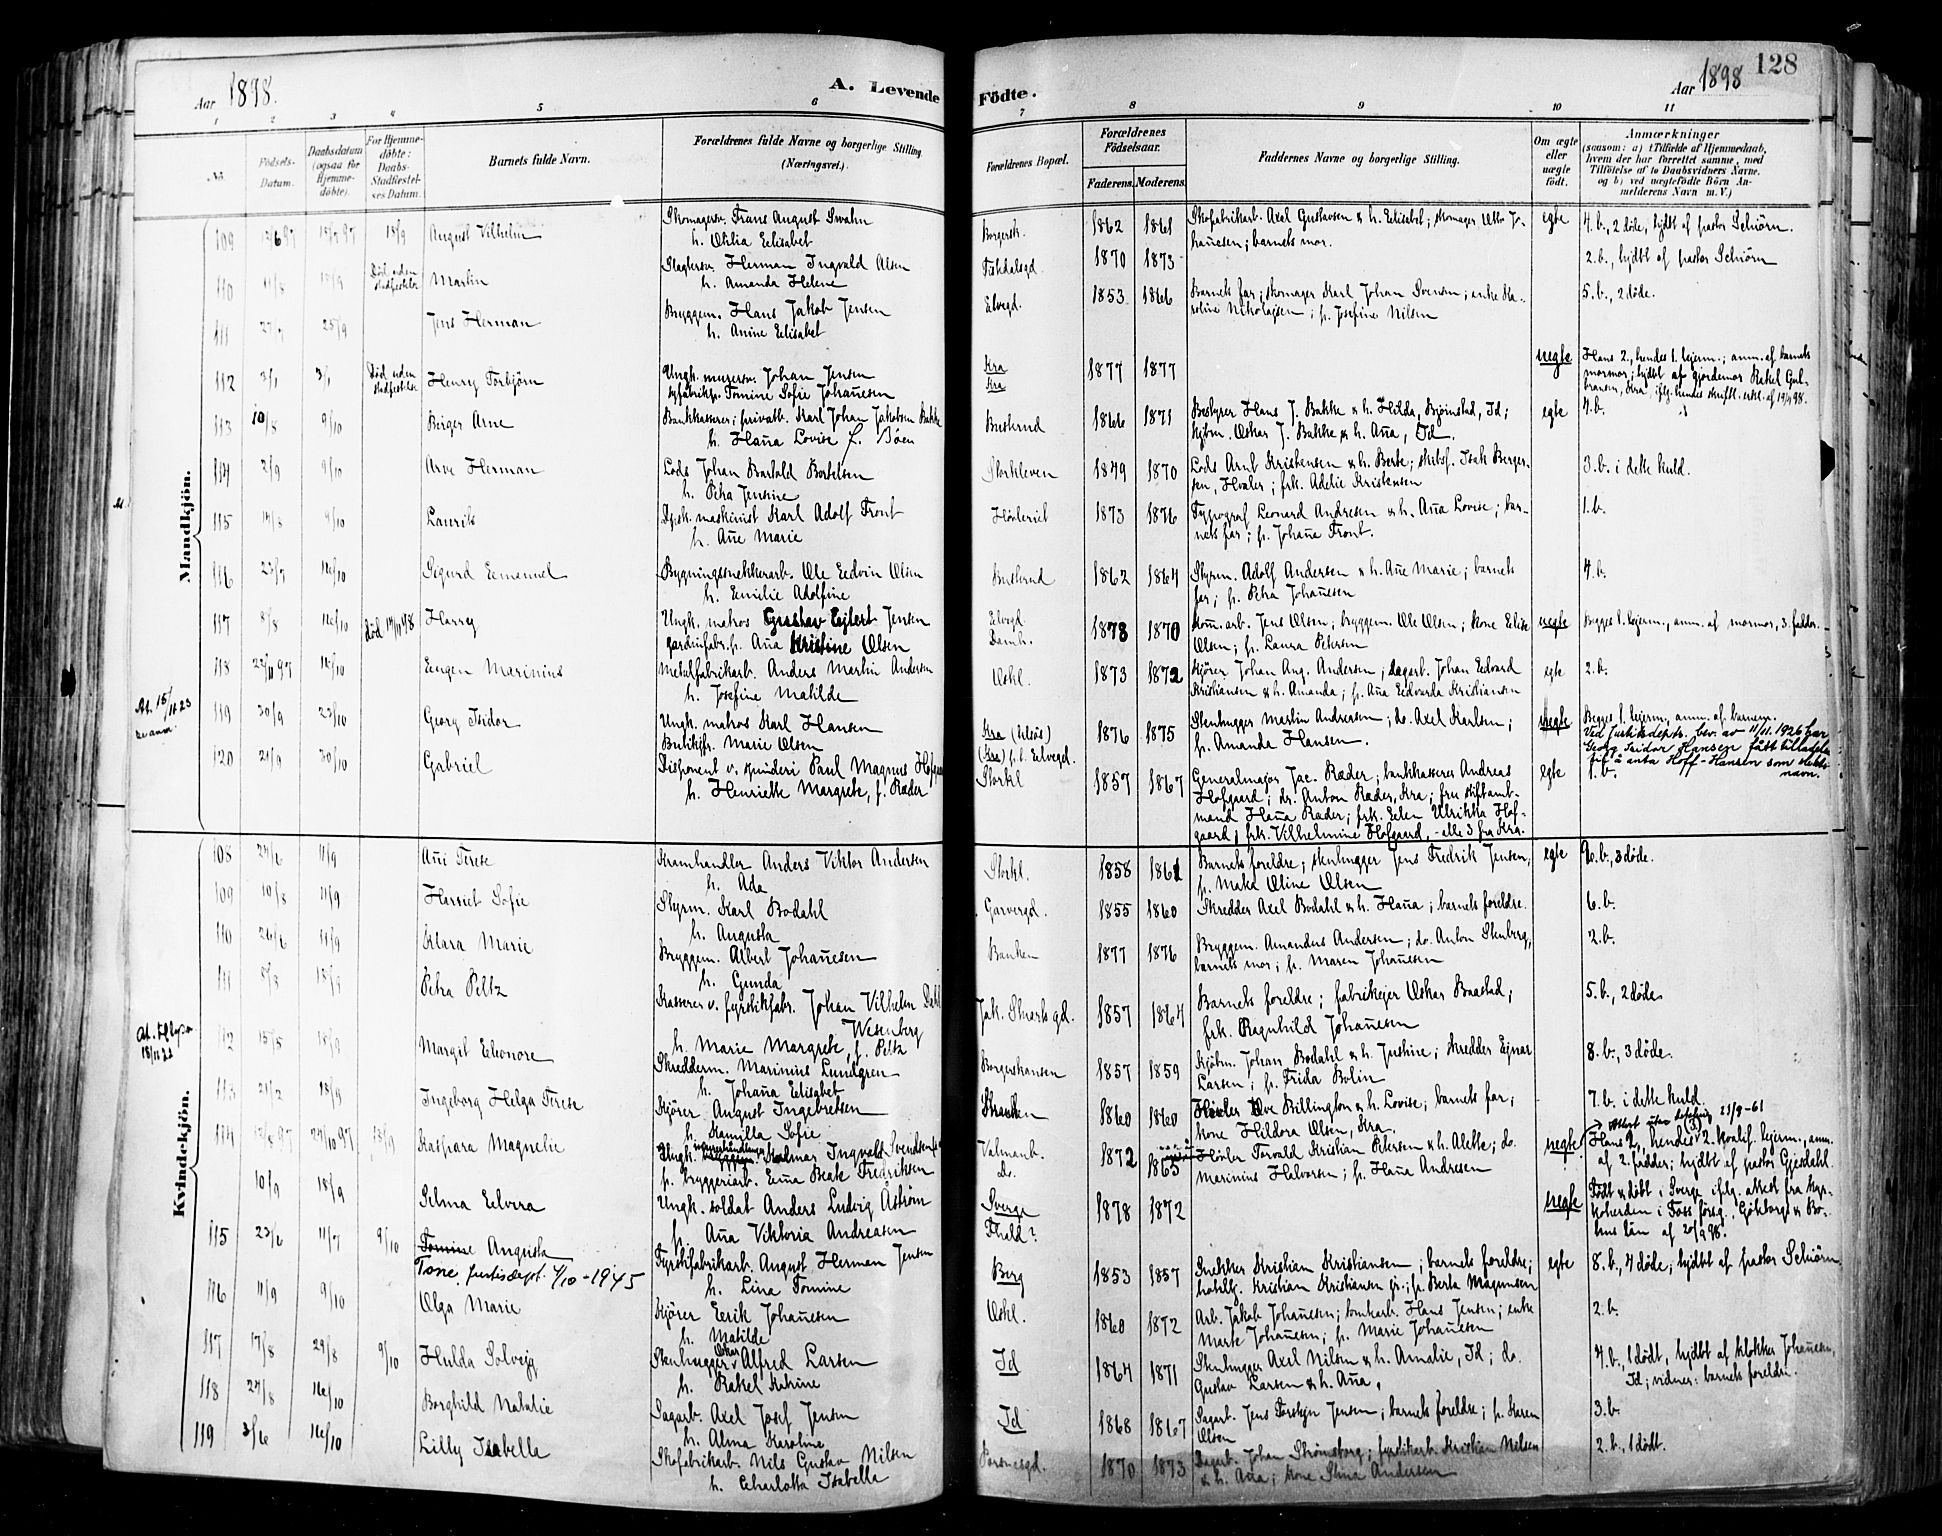 Aar 1898.
A. Levende Födte.
Aar 1898
128
1 2 3 4 5 6 7 8 9 10 11
No.
Födsels-Datum.
Daabsdatum (ogsaa for Hjemmedöbte).
For Hjemmedöbte: Daabs-Stadfæstelses Datum.
Barnets fulde Navn.
Forældrenes fulde Navne og borgerlige Stilling (Næringsvei).
Forældrenes Bopæl.
Forældrenes Födselsaar.
Faderens. Moderens.
Faddernes Navne og borgerlige Stilling.
Om ægte eller uægte födt.
Anmærkninger
(saasom: a) i Tilfælde af Hjemmedaab, hvem der har forrettet samme, med Tilföielse af to Daabsvidners Navne. og b) ved uægtefödte Börn Anmelderens Navn m. V.)
Mandkjön.
109 August Vilhelm
Skomagersv. Frans August Swahn
h. Othilia Elisabet
Borgersk. 1862 1861
Skofabrikarb. Axel Gustavsen & h. Elisabet; skomager Otto Johañesen; barnets mor.
egte 4.b., 2 döde, hjdbt af pastor Schiörn.
110 11/8 Død uden stadfestelse Martin
Slagtersv. Herman Ingvald Olsen
h. Amanda Helene
1870 1873
2.b., hjdbt af pastor Schiörn
111 27/7 25/9 Jens Herman
Bryggem. Hans Jakob Jensen
h. Anine Elisabet
Elvegd. 1853 1866
Barnets far; skomager Karl Johan Svensen; enke Karoline Nikolajsen; p. Josefine Nilsen
5.b., 2 döde.
112 3/1 3/1 Død uden stadfestelse Henry Torbjörn
Ungk. murersv. Johan Jensen
syfabrikp. Tomine Sofie Johañesen
Kra
Kra
1877 1877
uegte
Hans 2., hendes 1. lejerm.; anm. af barnets mormor; hjdbt af gjordemor Rakel Gulbransen, Kra, iflg. hendes skriftl. erkl. af 19/9 98.
113 10/8 9/10 Birger Arne
Bankkasserer; privatb. Karl Johan Jakobsen Bakke
h. Haña Lovise f. Böen
Buskrud 1866 1871
Bestyrer Hans J. Bakke & h. Hilda, Björnstad, Id; kjbm. Oskar J. Bakke & h. Aña, Id.
egte 4.b.
114 2/9 9/10 Arve Herman
Lods Johan Bartold Bertelsen
h. Petra Jensine
Storkleven 1849 1870
Lods Arnt Kristensen & h. Berte; skibsf. Isak Bergersen, Hvaler; frk. Adelie Kristensen
3.b. i dette kuld.
115 14/8 9/10 Laurits
Dpsk. maskinist Karl Adolf Front
h. Añe Marie
1873 1876
Typograf Leonard Andresen & h. Aña Lovise; barnets far; p. Johaña Front.
1.b.
116 23/7 16/10 Sigurd Emanuel
Bygningssnekkerarb. Ole Edvin Olsen
h. Emilie Adolfine
Buskrud 1862 1864
Styrm. Adolf Andersen & h. Añe Marie; barnets far; p. Petra Johañesen
4.b.
117 8/8 16/10 død 14/11 98 Harry
Ungk. matros Gustav Ejlert Jensen
gardinfabr.p. Aña Kristine Olsen
Elvegd
Damh.
1878 1870
Kom. arb. Jens Olsen; bryggem. Ole Olsen; kone Elise Olsen; p. Laura Petersen
uegte Begges 1. lejerm., anm. af mormor, 3. fadder.
118 22/11 97 16/10 Eugen Marinius
Metalfabrikarb. Anders Martin Andersen
h. Josefine Matilde
Oskl. 1873 1872
Kjører Johan Aug. Andersen; sagarb. Johan Edvard Kristiansen & h. Amanda; p. Aña Edvarda Kristiansen
egte 2.b.
At. 15/11.23
119 30/9 23/10 Georg Isidor
Ungk. matros Karl Hansen
Butikjfr. Marie Olsen
1876 1875
Stenhugger Martin Andersen; do. Axel Karlsen; p. Amanda Hansen.
uegte Begges 1. lejerm., anm. af barnem.
Ved justisdepts. bev. av 11/11.1926 har Georg Isidor Hansen fått tilladelse til å anta Hoff-Hansen som slektsnavn.
120 21/9 30/10 Gabriel
Disponent v. spinderi Paul Magnus Hofgaard
h. Henriette Margrete, f. Ræder
Storkl 1857 1867
Generalmajor Jac. Ræder; bankkasserer Andreas Hofgaard; dr. Anton Ræder, Kra; fru stiftamtmand Haña Ræder; frk. Elen Ulrikka Hofgaard; frk. Vilhelmine Hofgaard, - alle 3 fra Kra.
egte 1.b.
Kvindekjön.
108 24/6 11/9 Añi Terese
Kramhandler Anders Viktor Andersen
h. Ada
Storkl. 1858 1861
Barnets foreldre; stenhugger Jens Fredrik Jensen; p. Maka Oline Olsen
egte 10.b., 3 döde.
109 10/8 11/9 Harriet Sofie
Styrm. Karl Bodahl
h. Augusta
Garvergd. 1855 1860
Skredder Axel Bodahl & h. Haña; barnets foreldre.
6.b.
110 26/6 11/9 Klara Marie
Bryggem. Albert Johañesen
h. Gunda
Banken 1877 1876
Bryggem. Amandus Andersen; do. Anton Stenberg, barnets mor; p. Maren Johañesen
2.b.
111 5/3 18/9 Petra Peltz
Kasserer v. fyrstikfabr. Johan Vilhelm Dahl Wesenberg
h. Marie Margrete, f. Peltz
Jak. Stuartsgd. 1857 1864
Barnets foreldre; fabrikejer Oskar Baastad; frk. Ragnhild Johañesen
5.b., 2 döde
18/11 22
112 15/5 18/9 Margit Eleonore
Skredderm. Marinius Lundgren
h. Johaña Elisabet
Borgershansen 1857 1859
Kjøbm. Johan Bodahl & h. Justine; skredder Ejnar Larsen; p. Frida Bolin
8.b., 3 döde.
113 21/2 18/9 Ingeborg Helga Terese
Kjører August Ingebretsen
h. Kamilla Sofie
1860 1860
Høvler Ove Billington & h. Lovise; barnets far; kone Hildora Olsen, Kra.
7.b. i dette kuld.
114 24/10 97 18/9 Kaspara Magnelie
Ungk. Hjalmar Ingvald Svendsen
p. bryggeriarb. Ema Beate Fredriksen
Valmanb.
do.
1872 1865
Høvler Torvald Kristian Petersen & h. Alette; do. Marinius Halvorsen; p. Haña Andresen
uegte Hans 2., hendes 2. kvalif. lejerm., anm. af 2. fadder; hjdbt af pastor Gjesdahl.
10/9 18/9 Selma Elvera
Ungk. soldat Anders Ludvig Aström
p. Aña Viktoria Andreasen
Sverge
Fhald?
1878 1872
uegte Födt & döbt i Sverge iflg. attest fra kyrkoherden i Foss förs., Göteborgs & Bohus län af 20/9 98.
115 23/6 11/7 9/10 Tomine Augusta
Tone, justisdept. 4/10-1945
Fyrstikfabrikarb. August Herman Jensen
h. Lina Tomine
Berg 1853 1857
Snekker Kristian Kristiansen; barnets foreldre; Kristian Kristiansen jr.; p. Berta Magnusen
egte 8.b., 4 döde; hjdbt af pastor Schiörn.
116 11/9 9/10 Olga Marie
Kjører Eerik Johañesen
h. Matilde
Oskl. 1860 1872
Arb. Jakob Johañesen; tomtearb. Hans Jensen; enke Marte Johañesen; p. Marie Johañesen
2.b.
117 17/8 29/8 9/10 Hulda Solvejg
Stenhugger Oskar Alfred Larsen
h. Rakel Katrine
Id 1864 1871
Stenhugger Axel Nilsen & h. Amalie, Id; do. Gustav Larsen & h. Aña,
4.b., 1 dödt, hjdbt af klokker Johañesen, Id; vidner: barnets foreldre.
118 24/8 16/10 Borghild Natalie
Sagarb. Axel Josef Jensen
h. Alma Karoline
Id 1868 1867
Sagarb. Jens Torstejn Jensen; barnets foreldre; p. Karen Olsen
3.b.
119 3/6 16/10 Lilly Isabella
Skofabrikarb. Nils Gustav Nilsen
h. Charlotta Isabella
1870 1873
Sagarb. Johan Strömsborg; fyrstikarb. Kristian Nilsen & h. Aña; kone Stina Andersen
2.b., 1 dödt.